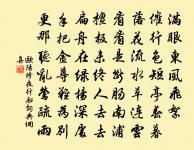 滿眼東風飛絮
催行色短亭春暮
落花流水草連雲
看看是斷腸南浦
檀板未終人去去
扁舟在綠楊深處
手把金尊難為別
更那聽亂鶯疏雨
歐陽修夜行船詞典網
集